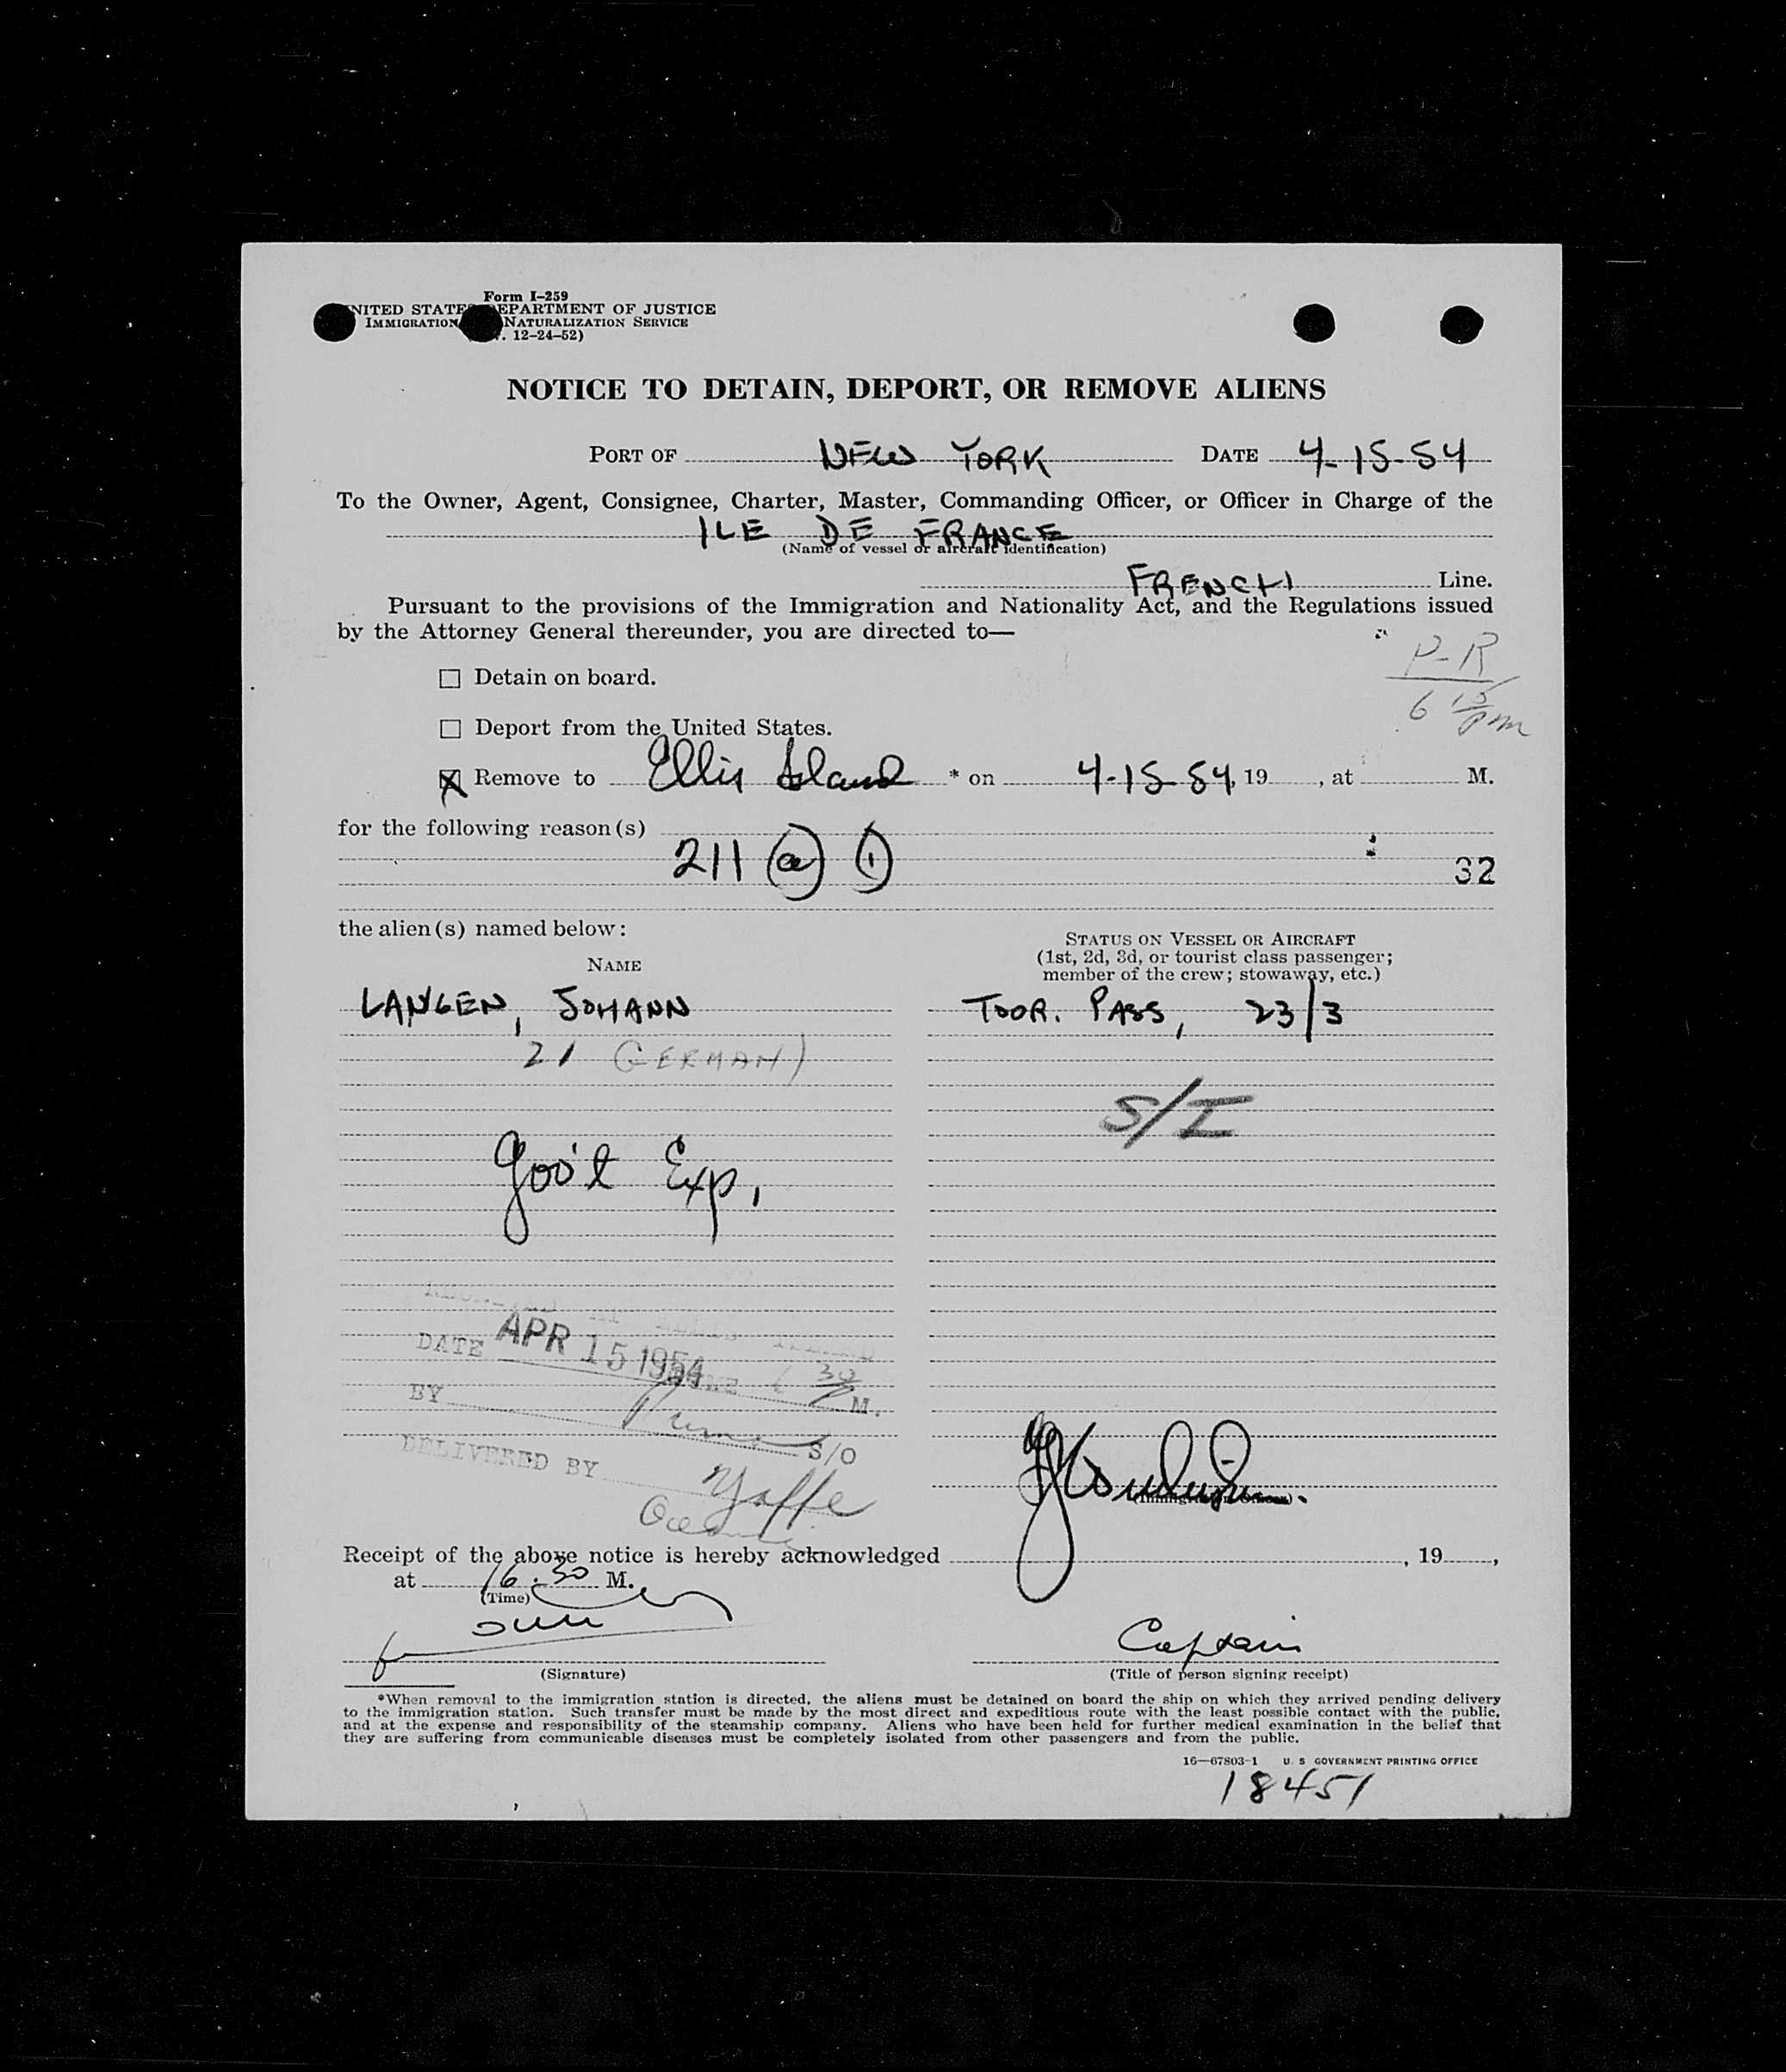 Form I-259
UNITED STATES DEPARTMENT OF JUSTICE
IMMIGRATION NATURALIZATION SERVICE
12-24-52)
NOTICE TO DETAIN, DEPORT, OR REMOVE ALIENS
PORT OF NEW YORK DATE 4-15-54
To the Owner, Agent, Consignee, Charter, Master, Commanding Officer, or Officer in Charge of the
ILE DE FRANCE
(Name of vessel or aircraft identification)
FRENCH Line.
Pursuant to the provisions of the Immigration and Nationality Act, and the Regulations issued
by the Attorney General thereunder, you are directed to—
P-R
6 15 pm
☐ Detain on board.
☐ Deport from the United States.
☒ Remove to Ellis Island * on 4-15-54, 19 , at M.
for the following reason(s)
211 (a) (1)
32
the alien(s) named below:
NAME
STATUS ON VESSEL OR AIRCRAFT
(1st, 2d, 3d, or tourist class passenger;
member of the crew; stowaway, etc.)
LANGEN, JOHANN TOOR. PASS, 23/3
21 GERMAN)
S/I
Gov't Exp.
RECEIVED AT ELLIS ISLAND
DATE APR 15 1954 TIME 6 30 P M.
BY S/O
DELIVERED BY Yaffe
(Immigration Officer)
Receipt of the above notice is hereby acknowledged , 19 ,
at 16.30 M.
(Time)
Captain
(Signature) (Title of person signing receipt)
*When removal to the immigration station is directed, the aliens must be detained on board the ship on which they arrived pending delivery
to the immigration station. Such transfer must be made by the most direct and expeditious route with the least possible contact with the public,
and at the expense and responsibility of the steamship company. Aliens who have been held for further medical examination in the belief that
they are suffering from communicable diseases must be completely isolated from other passengers and from the public.
16—67803-1 U. S. GOVERNMENT PRINTING OFFICE
18451